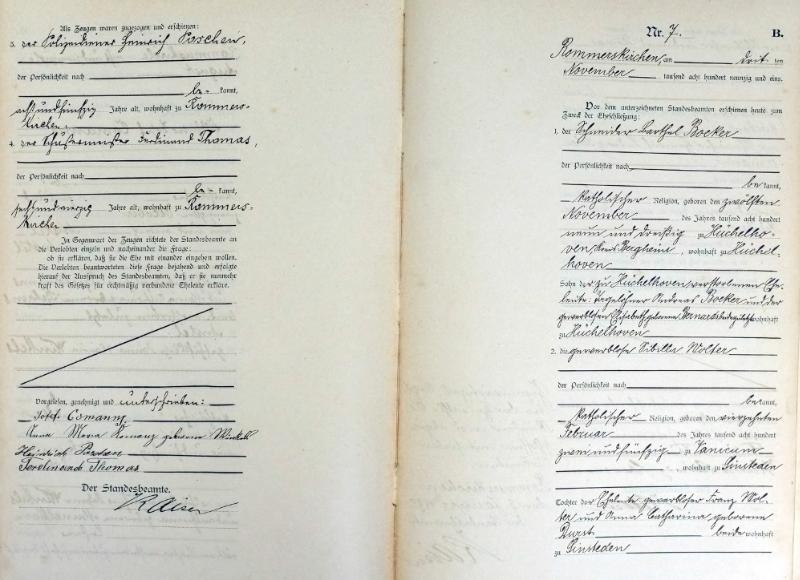 Als Zeugen waren zugezogen und erschienen:
3. der Polizeidiener Heinrich Poschen,
der Persönlichkeit nach
be- kannt,
achtundfünfzig Jahre alt, wohnhaft zu Rommers-
kirchen.
4. der Schustermeister Ferdinand Thomas,
der Persönlichkeit nach
be- kannt,
sechsundvierzig Jahre alt, wohnhaft zu Rommers-
kirchen
In Gegenwart der Zeugen richtete der Standesbeamte an
die Verlobten einzeln und nacheinander die Frage:
ob sie erklären, daß sie die Ehe mit einander eingehen wollen.
Die Verlobten beantworteten diese Frage bejahend und erfolgte
hierauf der Ausspruch des Standesbeamten, daß er sie nunmehr
kraft des Gesetzes für rechtmäßig verbundene Eheleute erkläre.
Vorgelesen, genehmigt und unterschrieben:
Josef Esmanns
Anna Maria geborene Winkels
Heinrich
Ferdinand Thomas
Der Standesbeamte.
Kaiser
Nr. 7. B.
Rommerskirchen, am drit ten
November tausend acht hundert neunzig und eins.
Vor dem unterzeichneten Standesbeamten erschienen heute zum
Zweck der Eheschließung:
1. der Schneider Barthel Becker
der Persönlichkeit nach
be kannt,
katholischer Religion, geboren den zwölften
November des Jahres tausend acht hundert
neun und dreißig zu Hüchelho-
ven, Kreis Bergheim, wohnhaft zu Hüchel-
hoven
Sohn der zu Hüchelhoven verstorbenen Ehe-
leute: Tagelöhner Andreas Becker und der
gewerblosen Elisabeth geborene wohnhaft
zu Hüchelhoven
2. die gewerblose Sibilla Wolter
der Persönlichkeit nach
be kannt,
katholischer Religion, geboren den vierzehnten
Februar des Jahres tausend acht hundert
zwei und fünfzig zu Vanikum
wohnhaft zu Sinsteden
Tochter der Eheleute gewerbloser Franz Wol-
ter und Anna Catharina geborene
Durst beide wohnhaft
zu Sinsteden